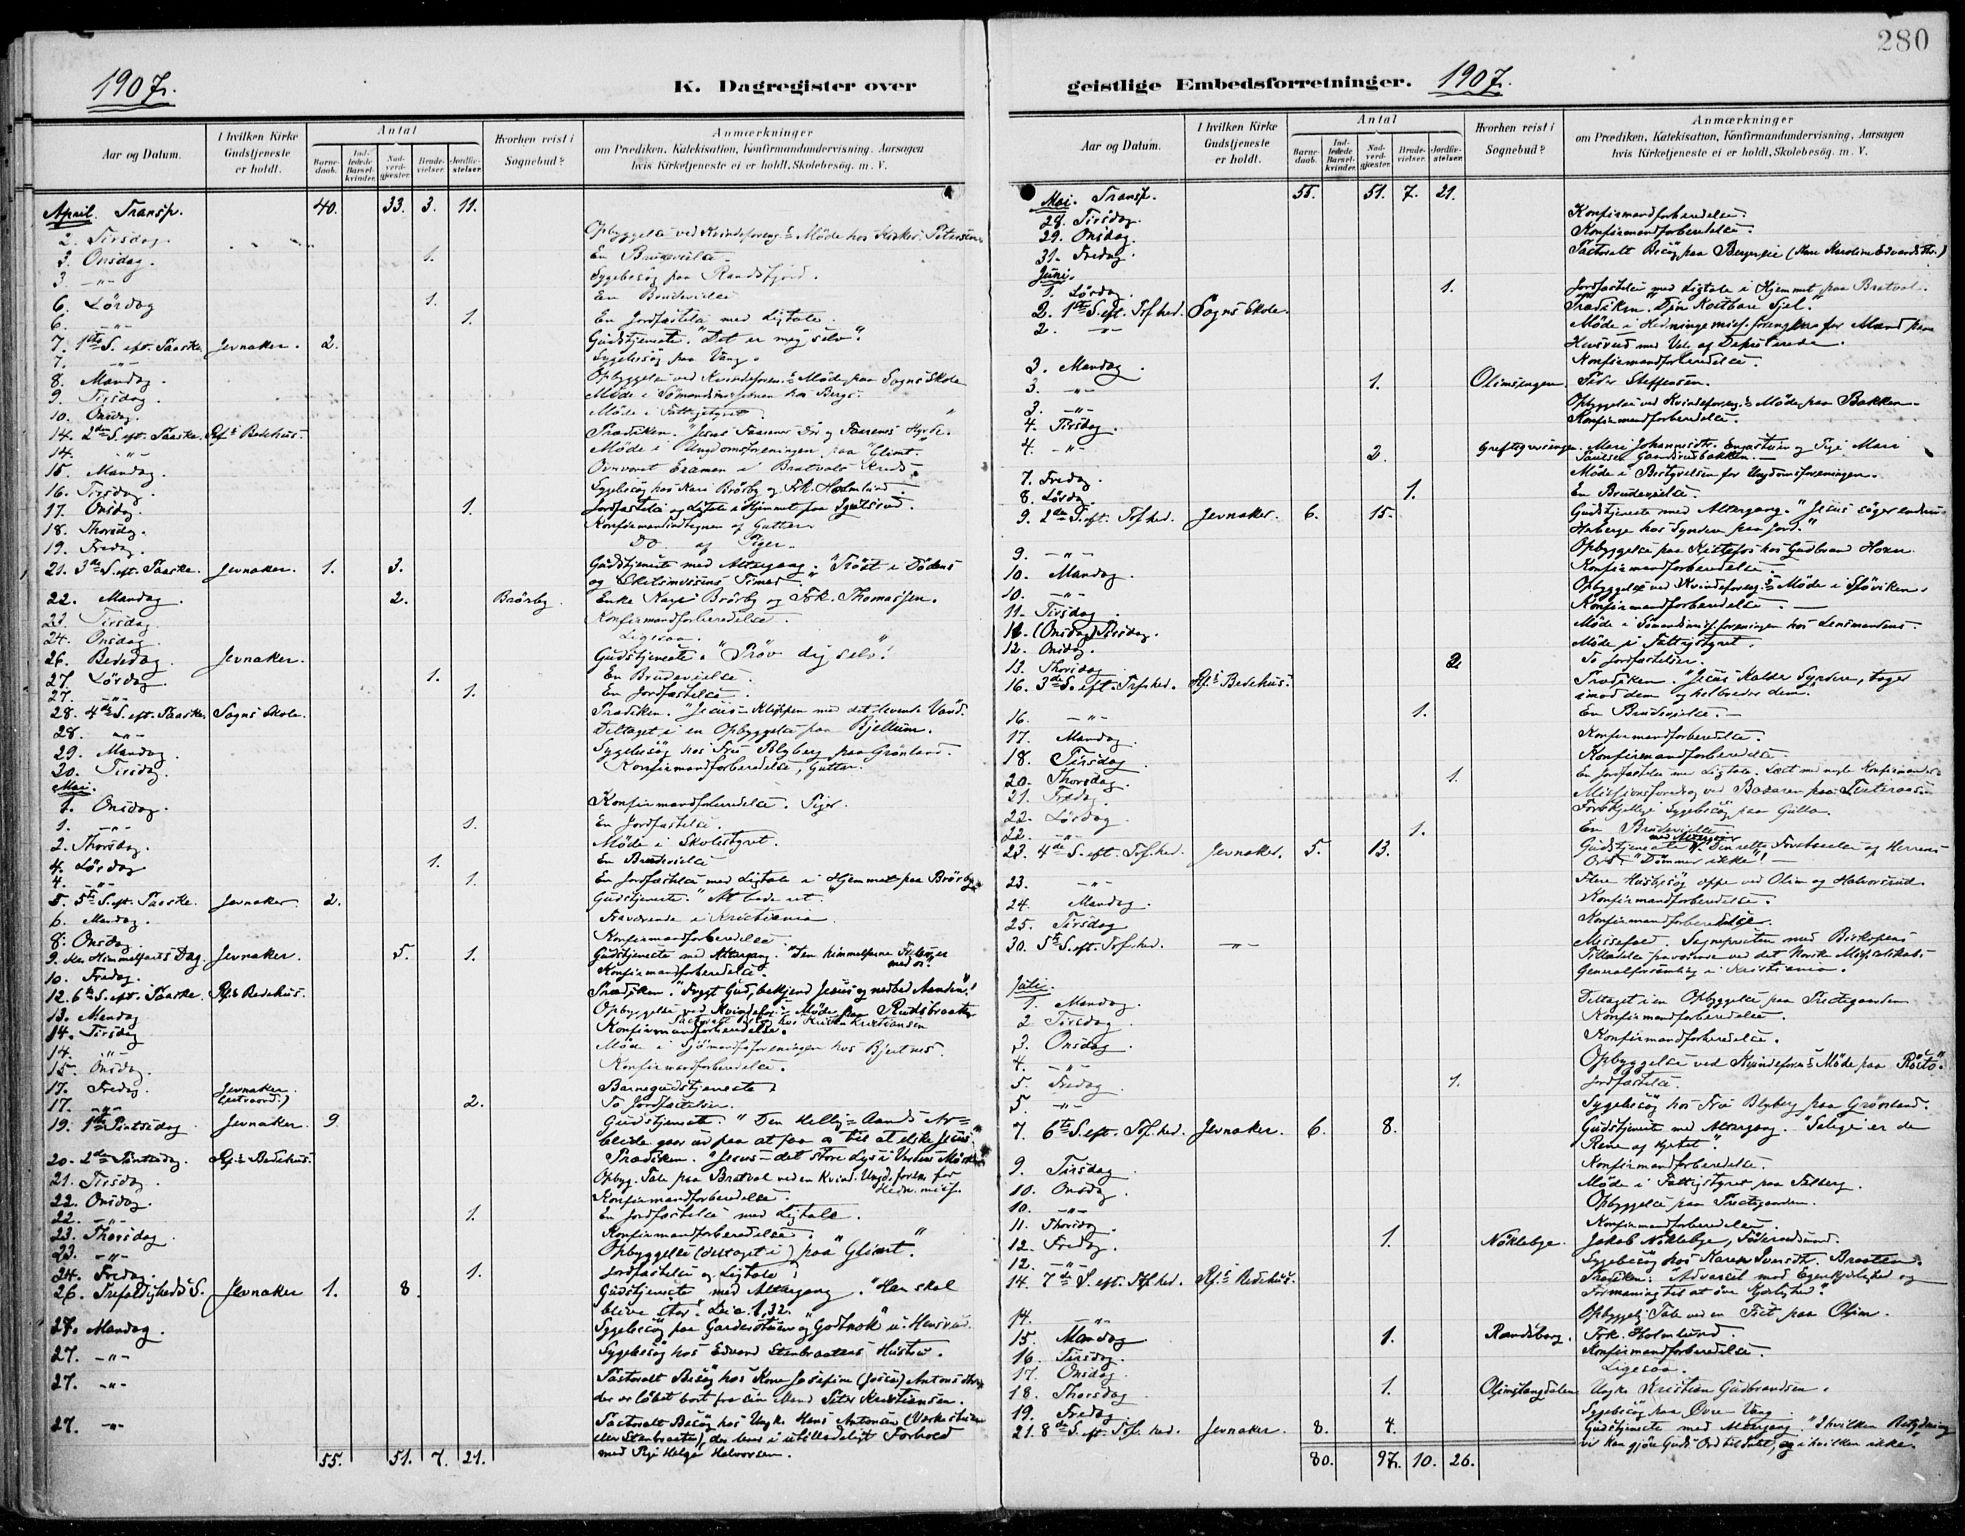 280
1907.
K. Dagregister over
geistlige Embedsforretninger.
1907.
Aar og Datum.
I hvilken Kirke Gudstjeneste er holdt.
Antal
Barnedaab.
Indledede Barselkvinder.
Nadverdgjæster.
Brudevielser.
Jordfæstelser.
Hvorhen reist i Sognebud?
Anmærkninger
om Prædiken, Katekisation, Konfirmandundervisning, Aarsagen
hvis Kirketjeneste ei er holdt, Skolebesøg. m. V.
April. Transp. 40. 33. 3. 11.
2. Tirsdag. Opbyggelse ved Kvindeforeng.s Møde hos Kirkes. Petersen
3. Onsdag. 1. En Brudevielse.
3. -"- Sygebesøg paa Randsfjord.
6. Lördag 1. En Brudevielse
6. -"- 1. En Jordfæstelse med Ligtale.
7. 1ste S. eft. Paaske. Jevnaker. 2. Gudstjeneste. "Det er mig selv".
7. -"- Sygebesøg paa Vang.
8. Mandag. Opbyggelse ved Kvindeforen.s Møde paa Sogns Skole
9. Tirsdag. Møde i Sömandsmissionen hos Bergs.
10. Onsdag. Møde i Fattigstyret.
14. 2den S. eft. Paaske. Rfs Bedehus. Prædiken. "Jesus Faarenes Dör og Faarenes Hyrde."
14. -"- Møde i Ungdomsforeningen paa "Glimt."
15. Mandag. Overværet Examen i Bratvals Kreds.
16. Tirsdag. Sygebesøg hos Kari Brørby og Frk. Holmlund.
17. Onsdag. 1. Jordfæstelse og Ligtale i Hjemmet paa
18. Thorsdag. Konfirmandindtegnen af Gutter.
19. Fredag. Do af Piger.
21. 3die S. eft. Paaske. Jevnaker. 1. 3. Gudstjeneste med Altergang. "Tröst i Dödens
og Skilsmissens Timer."
22. Mandag 2. Brørby. Enke Kari Brörby og Frk. Thomassen.
23. Tirsdag. Konfirmandforberedelse.
24. Onsdag. Ligesaa.
26. Bededag. Jevnaker. Gudstjeneste. "Pröv dig selv!"
27. Lördag. 1. En Brudevielse.
27. -"- 1. En Jordfæstelse.
28. 4de S. eft. Paaske. Sogns Skole. Prædiken. "Jesus - Klippen med det levende Vand.
28. -"- Deltaget i en Opbyggelse paa Bjellum.
29. Mandag. Sygebesøg hos Fru Blyberg paa Grønland.
30. Tirsdag. Konfirmandforberedelse, Gutter.
Mai.
1. Onsdag. Konfirmandforberedelse. Piger.
1. -"- 1. En Jordfæstelse.
2. Thorsdag. Møde i Skolestyret.
4. Lördag 1. En Brudevielse
4. -"- 1. En Jordfæstelse med Ligtale i Hjemmet paa Brörby
5. 5te S. eft. Paaske. Jevnaker. 2. Gudstjeneste. "At bede ret."
6. Mandag. Fraværende i Kristiania.
8. Onsdag Konfirmandforberedelse.
9. Kr. Himmelfarts Dag. Jevnaker. 5. 1. Gudstjeneste med Altergang. "Den himmelfarne Frelser er
med os".
10. Fredag. Konfirmandforberedelse.
12. 6te S. eft. Paaske. Rfs Bedehus. Prædiken. "Frygt Gud, bekjend Jesus og nedbed Aanden"!
13. Mandag Opbyggelse ved Kvindefor.s Møde paa Rudsbraaten
14. Tirsdag Konfirmandforberedelse. Pastoralt Besög hos Kristian Kristiansen
14. -"- Møde i Sjömandsforeningen hos Bjertnes.
15. Onsdag. Konfirmandforberedelse.
17. Fredag. Jevnaker. (extraord.) Barnegudstjeneste.
17. -"- 2. To Jordfæstelser.
19. 1ste Pintsedag Jevnaker. 9 Gudstjeneste. "Den Hellig-Aands Ar-
beide gaar ud paa at faa os til at elske Jesus.
20. 2den Pintsedag. Rfs Bedehus. Prædiken. "Jesus - det store Lys i Verdens Mörke
21. Tirsdag. Opbyg. Tale paa Bratval ved en Kvind. Ungd. foren. for
Hedn. miss.
22. Onsdag. Konfirmandforberedelse.
22. -"- 1. En Jordfæstelse med Ligtale.
23. Thorsdag. Konfirmandforberedelse.
23. -"- Opbyggelse (deltaget i) paa "Glimt".
24. Fredag. 1. Jordfæstelse og Ligtale.
26. Trefoldigheds S. Jevnaker 1. 8. Gudstjeneste med Altergang. "Han skal
blive stor". Luc. 1,32.
27. Mandag. Sygebesög paa Garderstuen og "Godtnok" u. Hensrud.
27. -"- Sygebesög hos Edvard Stenbraatens Hustru.
27. -"- Pastoralt Besög hos Kone Josefine Antonsdtr.
der er löbet bort fra sin Mand Peter Kristiansen.
27. -"- Pastoralt Besög hos Ungk. Hans Antonsen
eller Stenbraaten), der lever i utilladeligt Forhold
med Pige Helga Halvorsen.
55. 51. 7. 21.
Aar og Datum.
I hvilken Kirke Gudstjeneste er holdt.
Antal
Barnedaab.
Indledede Barselkvinder.
Nadverdgjæster.
Brudevielser.
Jordfæstelser.
Hvorhen reist i Sognebud?
Anmærkninger
om Prædiken, Katekisation, Konfirmandundervisning, Aarsagen
hvis Kirketjeneste ei er holdt, Skolebesøg. m. V.
Mai. Transp. 55. 51. 7. 21.
28. Tirsdag. Konfirmandforberedelse.
29. Onsdag. Konfirmandforberedelse.
31. Fredag. Pastoralt Besög paa Bergerseie (Kari Karoline Edvardsdtr.)
Juni.
1. Lördag. 1. Jordfæstelse med Ligtale i Hjemmet paa Bratval.
2. 1ste S. eft. Trf. hed. Sogns Skole. Prædiken. "Din kostbare Sjel."
2. -"- Møde i Hedningemiss. foreng.
Hersrud med Valg af Deputerede.
3. Mandag. Konfirmandforberedelse.
3. -"- 1. Olimseugen. Peder Steffensen.
3. -"- Opbyggelse ved Kvindeforeng.s Møde paa Bakken.
4. Tirsdag. Konfirmandforberedelse.
4. -"- 2. Mari Johannesdtr. og Pige Mari
Paulsen
7. Fredag. Møde i Bestyrelsen for Ungdomsforeningen.
8. Lördag. 1. En Brudevielse.
9. 2den S. eft. Trf. hed. Jevnaker. 6. 15. Gudstjeneste med Altergang. "Jesus söger endnu
Herberge hos Syndere paa Jord."
9. -"- Opbyggelse paa Kittefos hos Gudbrand Horn.
10. Mandag. Konfirmandforberedelse.
10. -"- Opbyggelse ved Kvindeforeng.s Møde i Sløviken.
11. Tirsdag. Konfirmandforberedelse.
11. (Onsdag) Tirsdag. Møde i Sömandsmissforeningen hos Lensmandens.
12. Onsdag. Møde i Fattigstyret.
13. Thorsdag. 2. To Jordfæstelser.
16. 3die S. eft. Trf. hed. Rfs Bedehus. Prædiken. "Jesus kalder Syndere, tager
imod dem og helbreder dem."
16. -"- 1. En Brudevielse.
17. Mandag. Konfirmandforberedelse.
18. Tirsdag Konfirmandforberedelse
20. Thorsdag. 1. En Jordfæstelse med Ligtale. Læst med nogle Konfirmander.
21. Fredag. Missionsforedrag ved Basaren paa
22. Lördag. Forskjellige Sygebesög paa Gulla.
22. -"- 1. En Brudevielse.
23. 4de S. eft. Trf. hed. Jevnaker. 5. 13. Gudstjeneste med Altergang. Den rette Forstaaelse af Herrens
Ord: "Dömmer ikke"!
23. -"- Flere Husbesög oppe ved Olim og Halvorsrud.
24. Mandag. Konfirmandforberedelse.
25. Tirsdag Konfirmandforberedelse.
30. 5te S. eft. Trf. hed. -"- Messefald. Sognepresten med Biskopens
Tilladelse fraværende ved det Norske Missionsselskabs
Generalforsamling i Kristiania.
Juli.
1. Mandag. Deltaget i en Opbyggelse paa Tretteganden
2. Tirsdag. Konfirmandforberedelse.
3. Onsdag. Konfirmandforberedelse.
4. -"- Opbyggelse ved Kvindeforen.s Møde paa "Rösto."
5. Fredag 1. Jordfæstelse.
5. -"- Sygebesög hos Fru Blyberg paa Grönland.
7. 6te S. eft. Trf. hed. Jevnaker. 6. 8. Gudstjeneste med Altergang. "Salige er de
Rene af Hjertet".
9. Tirsdag Konfirmandforberedelse.
10. Onsdag. Møde i Fattigstyret paa Felberg.
10. -"- Opbyggelse paa Tretteganden.
11. Thorsdag. Konfirmandforberedelse.
12. Fredag. 1. Nöklebye. Jakob Nöklebye, Föderaadsmand.
12. -"- Sygebesög hos Karen Iversdtr. Braaten.
14. 7de S. eft. Trf. hed. Rfs Bedehus. Prædiken: "Advarsel mod Egenkjærlighed og
Formaning til at öve Kjærlighed."
14. -"- Opbyggelig Tale ved en Fest paa Olim.
15. Mandag 1. Randsborg. Frk. Holmlund.
16. Tirsdag. Konfirmandforberedelse.
17. Onsdag. Ligesaa.
18. Thorsdag 1. Olimslangdalen Ungk. Kristian Gudbrandsen.
19. Fredag Sygebesög paa Övre Vang.
21. 8de S. eft. Trf. hed. Jevnaker. 8. 4. Gudstjeneste med Altergang. "I hvilken Betydning
vi kan gjöre Guds Ord til det, og i hvilken ikke.
80. 97. 10. 26.